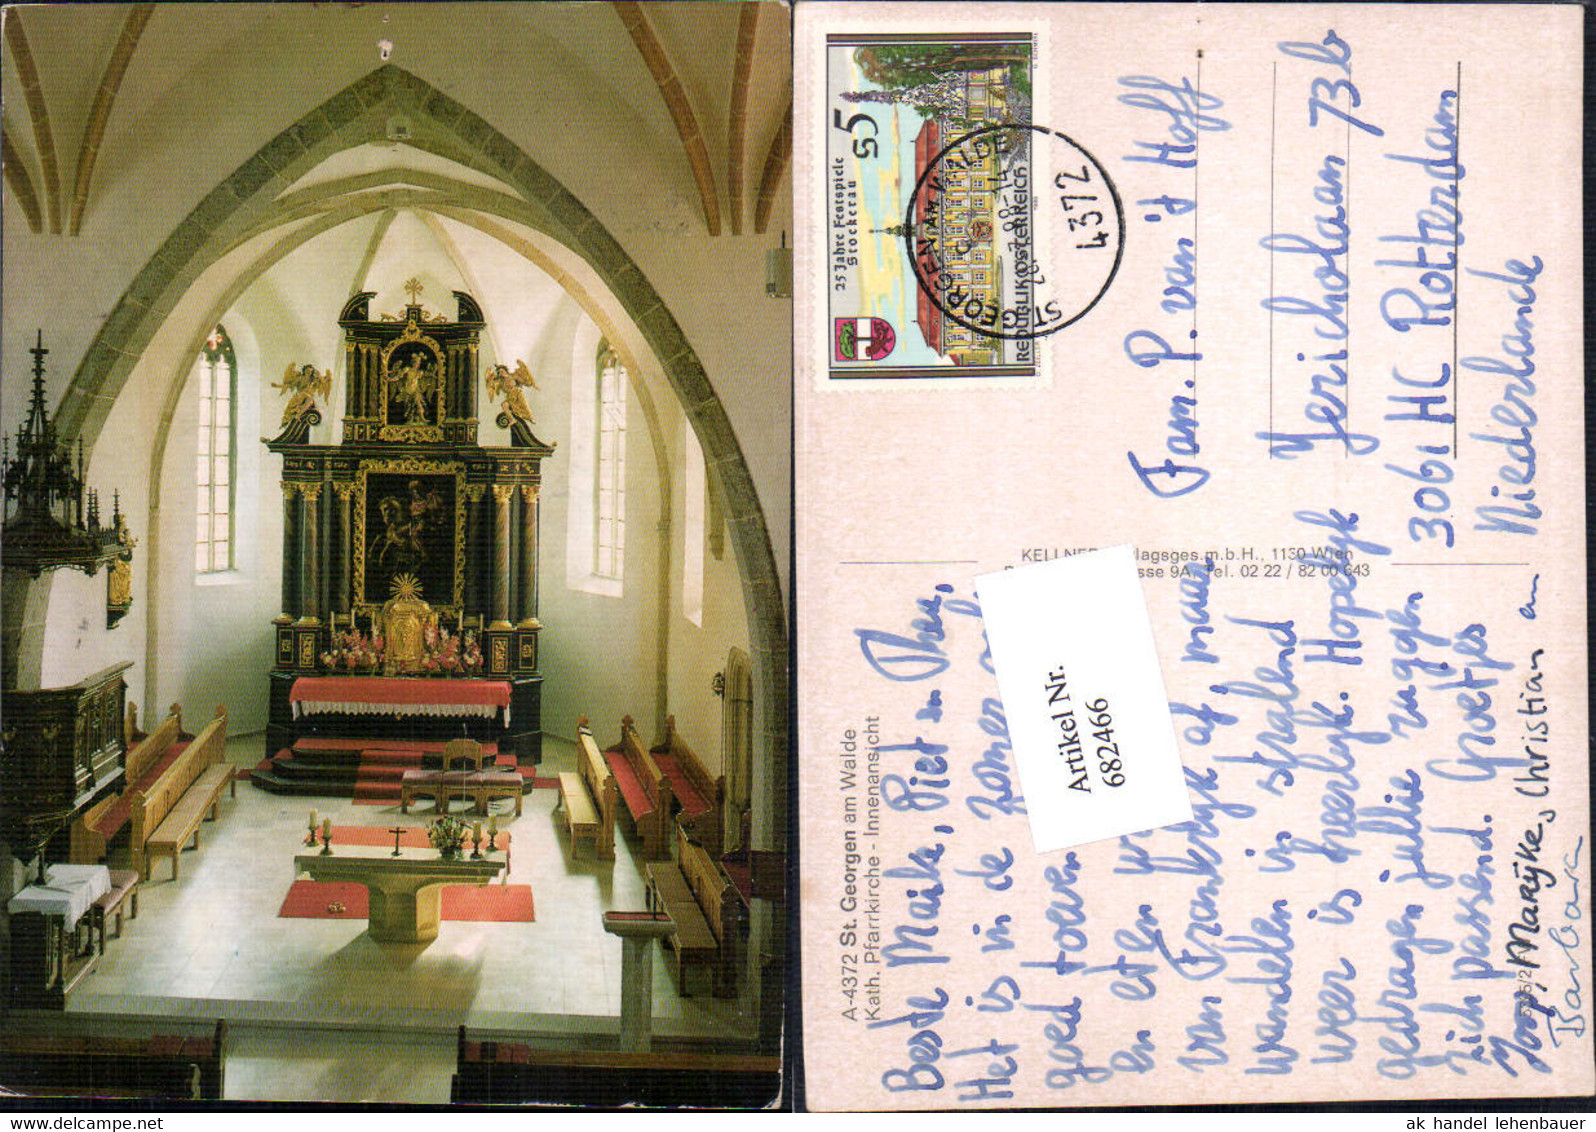 A-4372 St. Georgen am Walde
Kath. Pfarrkirche - Innenansicht
Beste Maike, Piet en Theu,
Het is in de zomer
goed toeven
en eten
van Frankrijk af, maar
wandelen in stralend
weer is heerlijk. Hopelijk
gedragen jullie
zich passend. Groetjes
Joop, Marijke, Christian en
Barbara
KELLNER
lagsges.m.b.H., 1130 Wien
sse 9A, Tel. 02 22 / 82 00 643
Artikel Nr.
682466
25 Jahre Festspiele
Stockerau
S5
REPUBLIK ÖSTERREICH
ST. GEORGEN AM WALDE
4372
Fam. P. van 't Hoff
Jericholaan 73b
3061 HC Rotterdam
Niederlande
ak handel lehenbauer